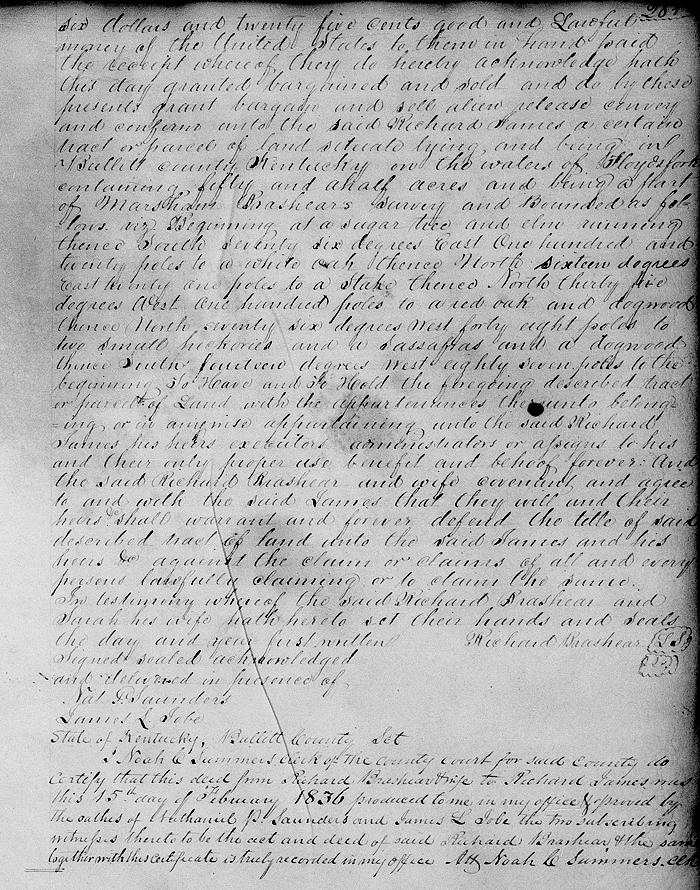 six dollars and twenty five cents good and Lawful
money of the United States to them in hand paid
the receipt whereof they do hereby acknowledge hath
this day granted bargained and sold and do by these
presents grant bargain and sell alien release convey
and confirm unto the said Richard James a certain
tract or parcel of land situate lying and being in
Bullitt county Kentucky on the waters of Floydsfork
containing fifty and a half acres and being a part
of Marsham Brashear's Survey and Bounded as fol-
-lows. viz. Beginning at a sugar tree and elm running
thence South seventy six degrees East One hundred and
twenty poles to a white oak thence North sixteen degrees
East twenty one poles to a Stake thence North thirty five
degrees West One hundred poles to a red oak and dogwood
thence North seventy six degrees West forty eight poles to
two small hickories and a sassafras and a dogwood
thence South fourteen degrees West eighty seven poles to the
beginning To Have and To Hold the foregoing described tract
or parcel of Land with the appurtenances thereunto belong-
-ing or in anywise appertaining unto the said Richard
James his heirs executors administrators or assigns to his
and their only proper use benefit and behoof forever: And
the said Richard Brashear and wife covenant and agree
to and with the said James that they will and their
heirs &c shall warrant and forever defend the title of said
described tract of land unto the said James and his
heirs &c against the claim or claims of all and every
persons lawfully claiming or to claim the same.
In testimony whereof the said Richard Brashear and
Sarah his wife hath hereto set their hands and seals
the day and year first written Richard Brashear
Signed sealed acknowledged
and delivered in presence of
Nat P. Saunders
James L Tobe
State of Kentucky, Bullitt County Sct
I Noah C Summers clerk of the county court for said County do
certify that this deed from Richard Brashear & wife to Richard James was
this 15th day of February 1836 produced to me in my office & proved by
the oathes of Nathaniel P. Saunders and James L Tobe the two subscribing
witnesses thereto to be the act and deed of said Richard Brashear & the same
together with this certificate is truly recorded in my office Att Noah C Summers. clk